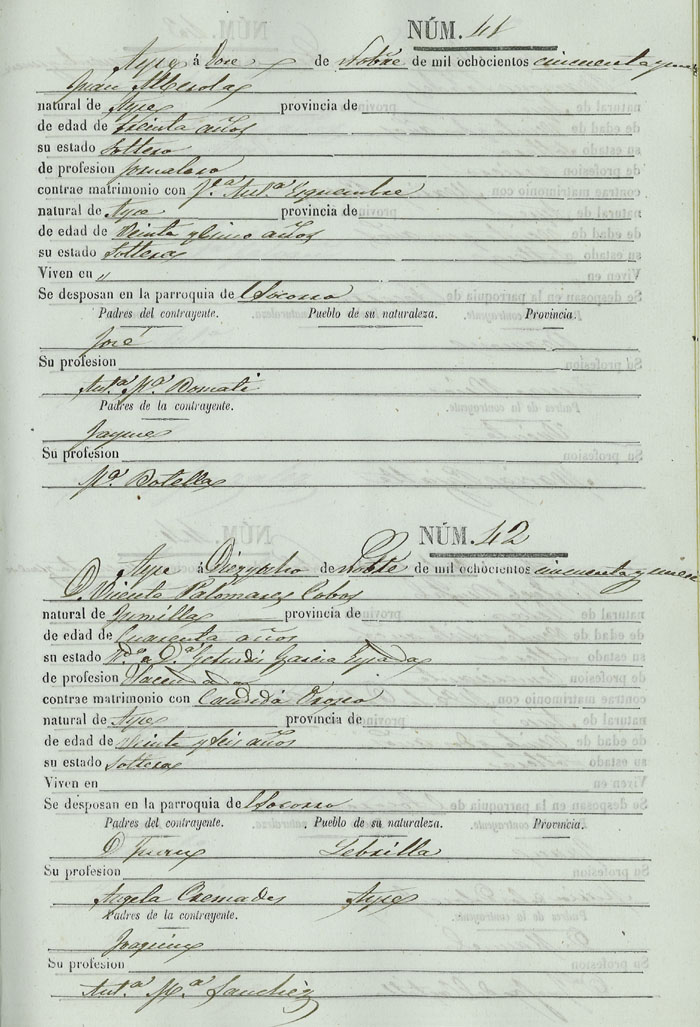 NÚM. 41
Aspe á Doce de Nobre de mil ochocientos cincuenta y
Juan Alberola
natural de Aspe provincia de
de edad de treinta años
su estado Soltero
de profesion Jornalero
contrae matrimonio con Antª
natural de Aspe provincia de
de edad de Veinte y cinco años
su estado Soltera
Viven en "
Se desposan en la parroquia de Socorro
Padres del contrayente. Pueblo de su naturaleza. Provincia.
José
Su profesion
Antª Mª
Padres de la contrayente.
Jayme
Su profesion
Mª Botella
NÚM. 42
Aspe á Diezyocho de Nobre de mil ochocientos cincuenta y
D. Vicente Palomares Cobos
natural de Jumilla provincia de
de edad de Cuarenta años
su estado Vdo. de Dª Getrudis Garcia
de profesion Hacendado
contrae matrimonio con Candida
natural de Aspe provincia de
de edad de Veinte y seis años
su estado Soltera
Viven en
Se desposan en la parroquia de Socorro
Padres del contrayente. Pueblo de su naturaleza. Provincia.
D. Juan Lebrilla
Su profesion
Angela Cremades Aspe
Padres de la contrayente.
Joaquin
Su profesion
Antª Mª Sanchez